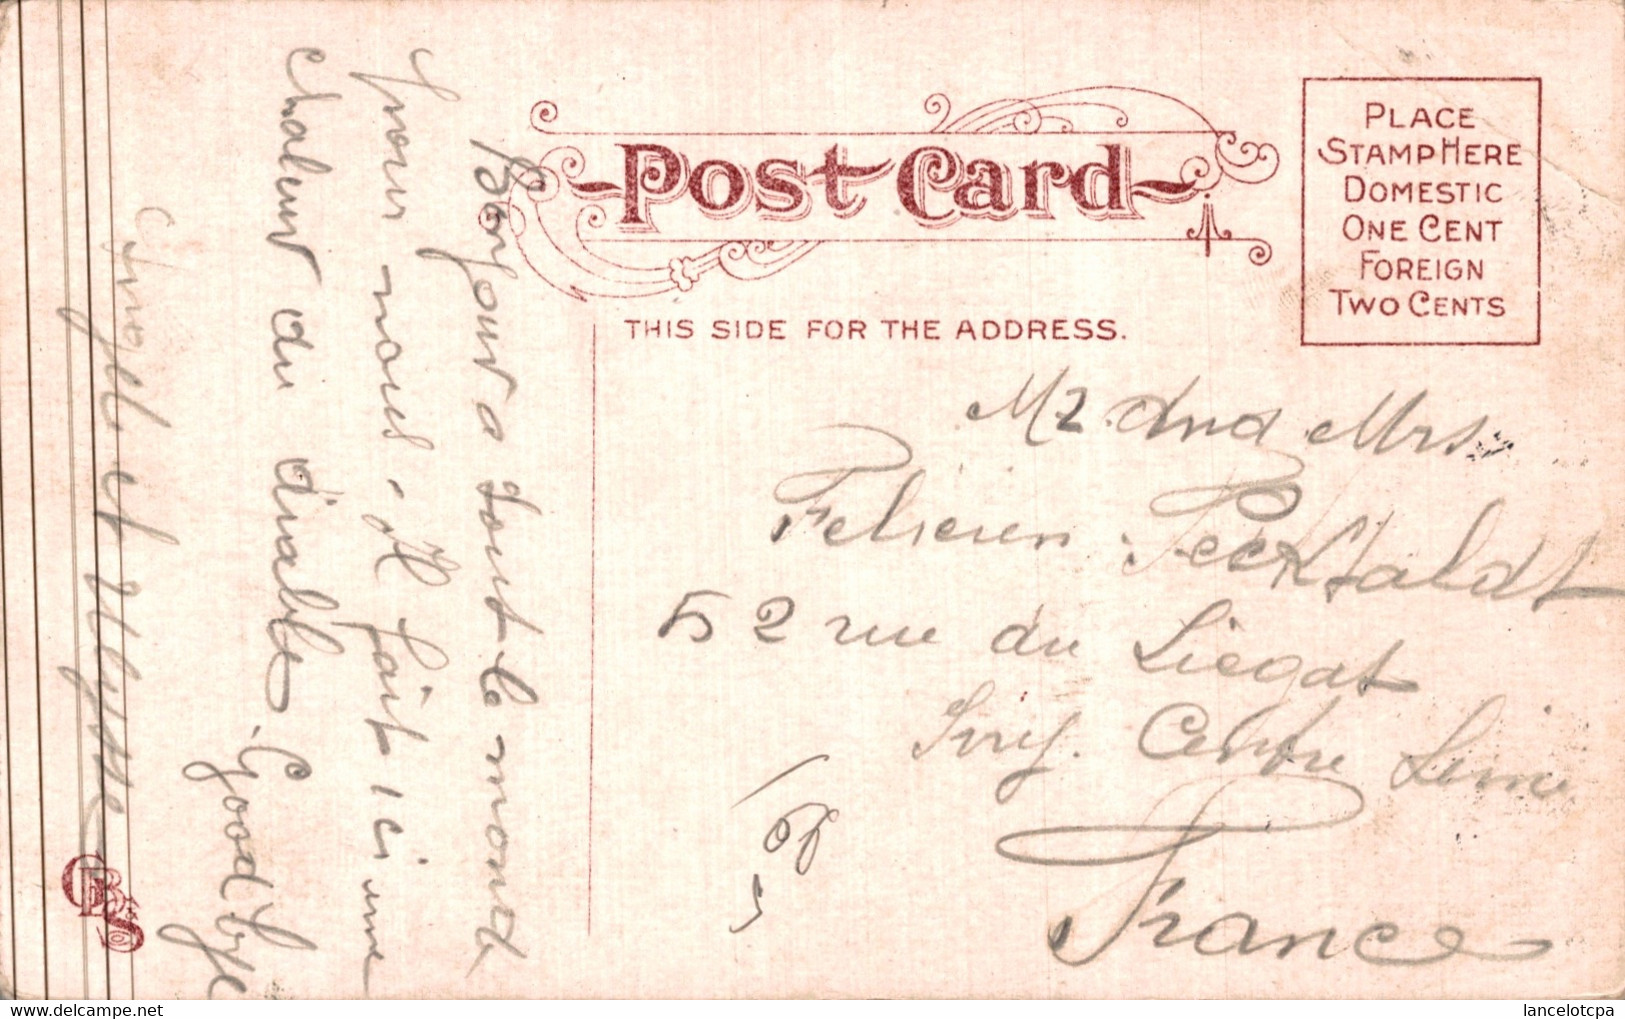 Post Card
THIS SIDE FOR THE ADDRESS.
PLACE
STAMP HERE
DOMESTIC
ONE CENT
FOREIGN
TWO CENTS
Bonjour a tout le monde
pour nous. Il fait ici une
chaleur du diable. Good bye
Angel et Ulysse
Mr. And Mrs.
Felicien
52 rue du Liegat
Ivry. Centre Seine
France
lancelotcpa